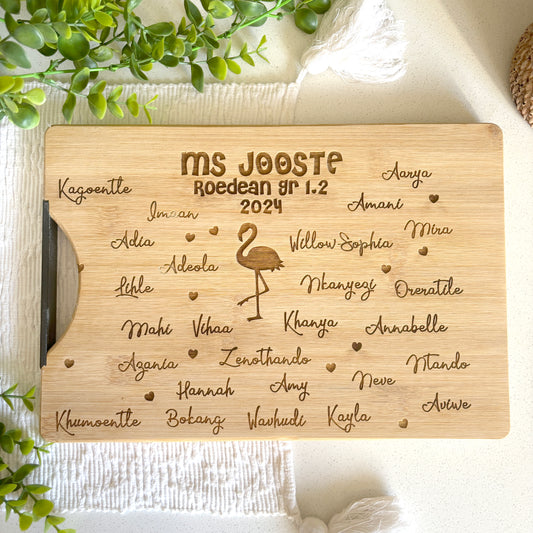 MS JOOSTE
Roedean gr 1.2
2024
Kagoentle
Aarya
Imaan
Amani
Adia
Willow Sophia
Mira
Lihle
Adeola
Nkanyezi
Oreratile
Mahi
Vihaa
Khanya
Annabelle
Azania
Zenothando
Ntando
Hannah
Amy
Neve
Khumoentle
Bokang
Wavhudi
Kayla
Aviwe